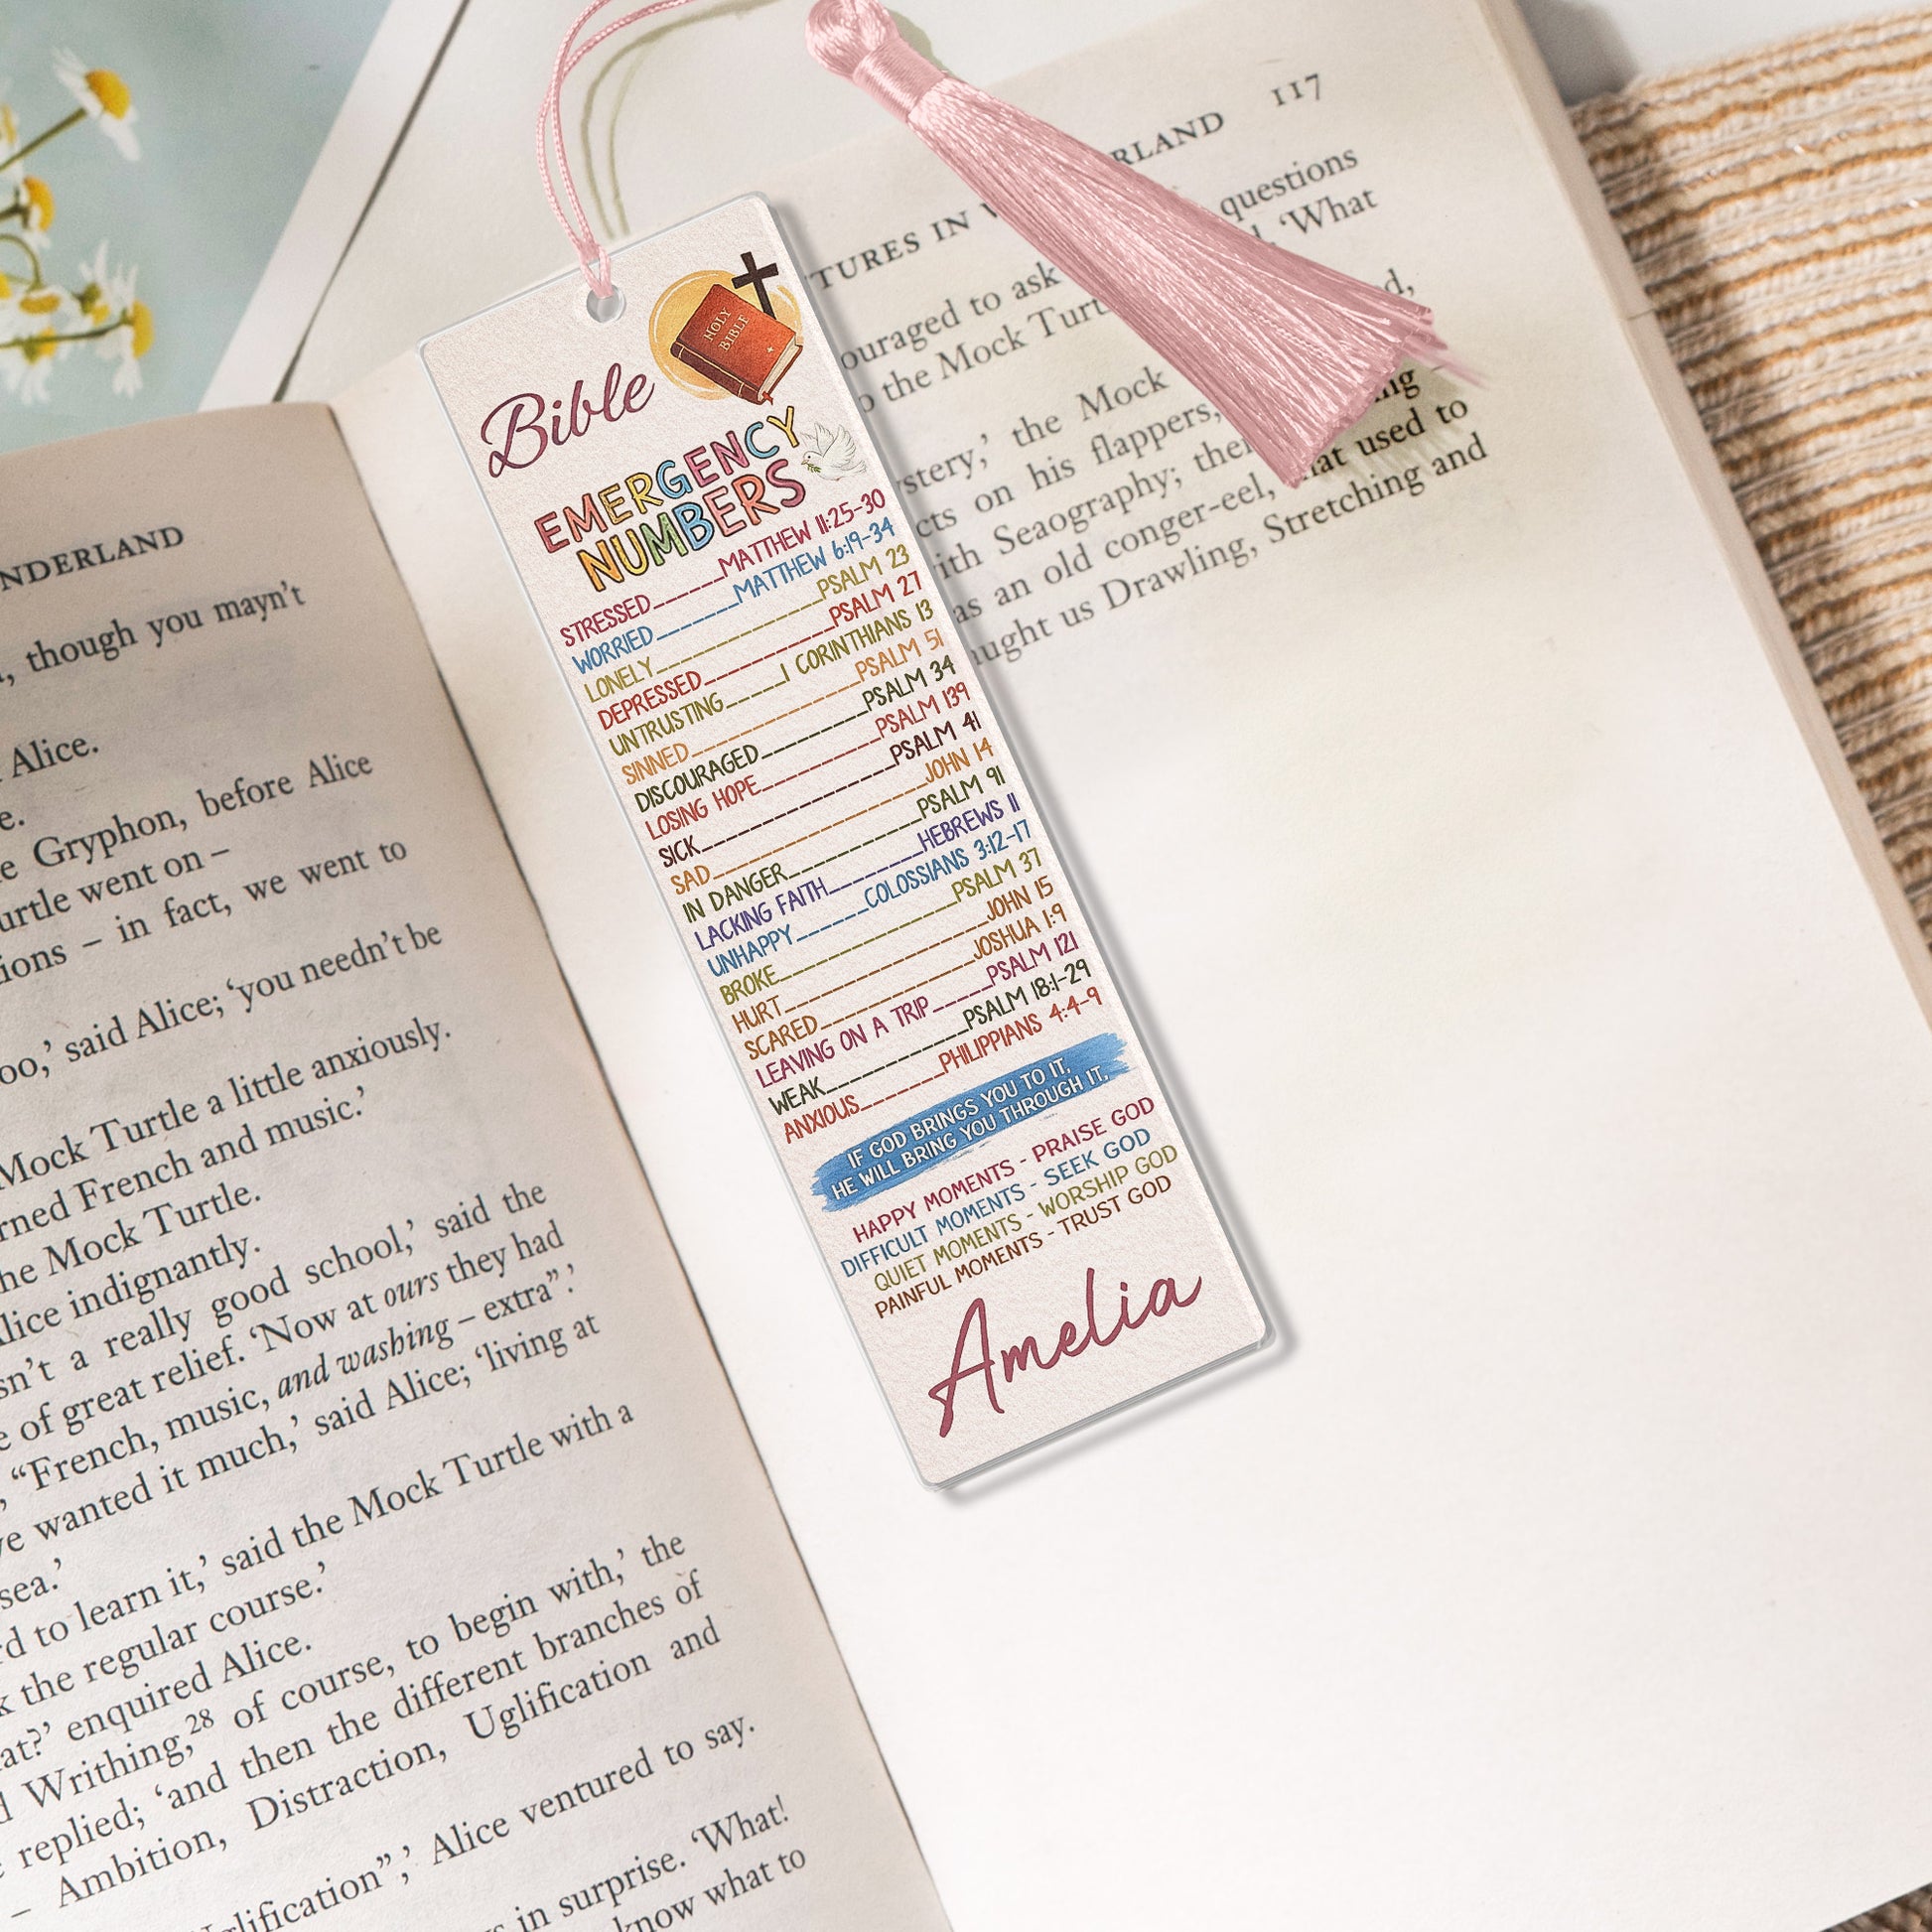 NDERLAND
, though you mayn't
Alice.
e.
e Gryphon, before Alice
urtle went on –
ions – in fact, we went to
oo,' said Alice; 'you needn't be
Mock Turtle a little anxiously.
rned French and music.'
he Mock Turtle.
lice indignantly.
sn't a really good school,' said the
e of great relief. 'Now at ours they had
, "French, music, and washing – extra".'
ve wanted it much,' said Alice; 'living at
sea.'
rd to learn it,' said the Mock Turtle with a
k the regular course.'
at?' enquired Alice.
d Writhing,28 of course, to begin with,' the
replied; 'and then the different branches of
– Ambition, Distraction, Uglification and
glification",' Alice ventured to say.
in surprise. 'What!
know what to
HOLY
BIBLE
Bible
EMERGENCY
NUMBERS
STRESSED______MATTHEW 11:25-30
WORRIED_______MATTHEW 6:19-34
LONELY______________PSALM 23
DEPRESSED___________PSALM 27
UNTRUSTING_____1 CORINTHIANS 13
SINNED______________PSALM 51
DISCOURAGED_________PSALM 34
LOSING HOPE__________PSALM 139
SICK________________PSALM 41
SAD__________________JOHN 14
IN DANGER___________PSALM 91
LACKING FAITH________HEBREWS 11
UNHAPPY______COLOSSIANS 3:12-17
BROKE_______________PSALM 37
HURT_________________JOHN 15
SCARED_____________JOSHUA 1:9
LEAVING ON A TRIP_____PSALM 121
WEAK____________PSALM 18:1-29
ANXIOUS_______PHILIPPIANS 4:4-9
IF GOD BRINGS YOU TO IT,
HE WILL BRING YOU THROUGH IT,
HAPPY MOMENTS - PRAISE GOD
DIFFICULT MOMENTS - SEEK GOD
QUIET MOMENTS - WORSHIP GOD
PAINFUL MOMENTS - TRUST GOD
Amelia
TURES IN W RLAND 117
questions
ouraged to ask 'What
o the Mock Turt d,
ystery,' the Mock
cts on his flappers, ing –
ith Seaography; the hat used to
as an old conger-eel, Stretching and
aught us Drawling,